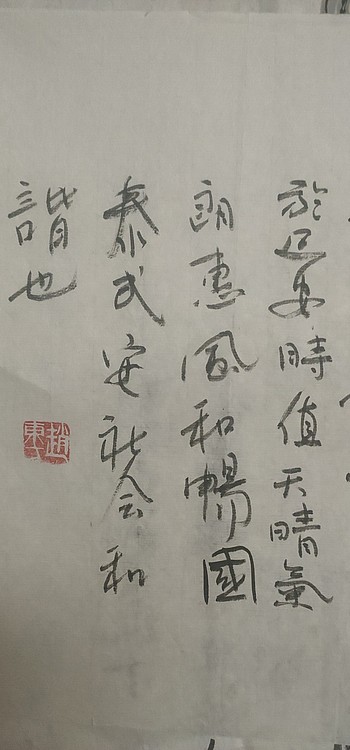 於迟安時值天晴氣
朗惠風和暢國
泰民安社会和
諧也
趙東